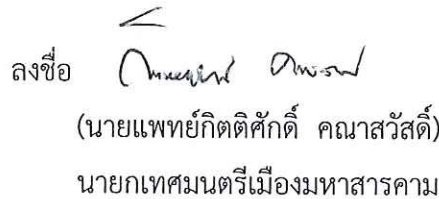 ลงชื่อ
(นายแพทย์กิตติศักดิ์ คณาสวัสดิ์)
นายกเทศมนตรีเมืองมหาสารคาม